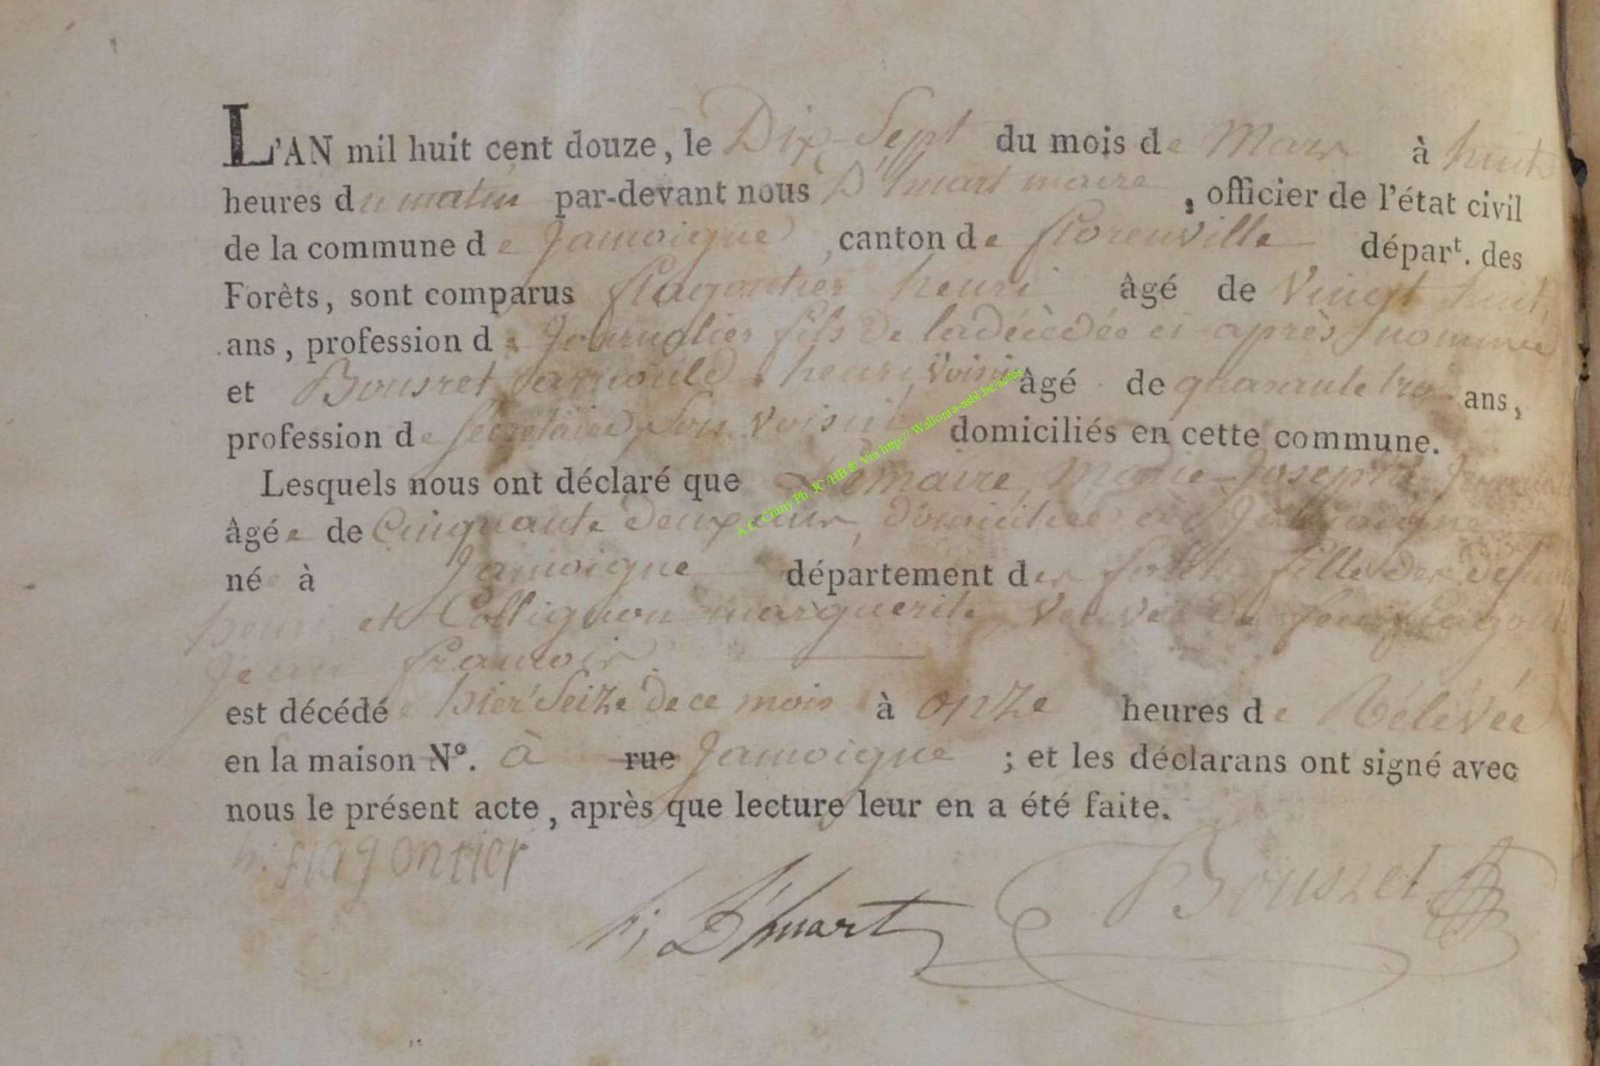 L'AN mil huit cent douze, le Dix-Sept du mois de Mars à huit
heures du matin par-devant nous D'huart maire, officier de l'état civil
de la commune de Jamoigne, canton de florenville départ. des
Forêts, sont comparus flagontier henri âgé de Vingt huit
ans, profession de Journalier fils de la décédée ci-après nommée
et Bousret henri voisin âgé de quarante trois ans,
profession de secrétaire, son voisin domiciliés en cette commune.
Lesquels nous ont déclaré que Lemaire, Marie-Josephe
âgée de Cinquante deux ans, domiciliée à Jamoigne
née à Jamoigne département des forêts fille des défunts
henri et Collignon marguerite Veuve de feu flagontier
Jean francois
est décédée hier Seize de ce mois à onze heures de Rélévée
en la maison N°. à rue Jamoigne ; et les déclarans ont signé avec
nous le présent acte, après que lecture leur en a été faite.
h: flagontier
h; D'huart
Bousret
A.C. Chiny Ph. JC/HB ® Via http:// Wallonia-asbl.be/actes